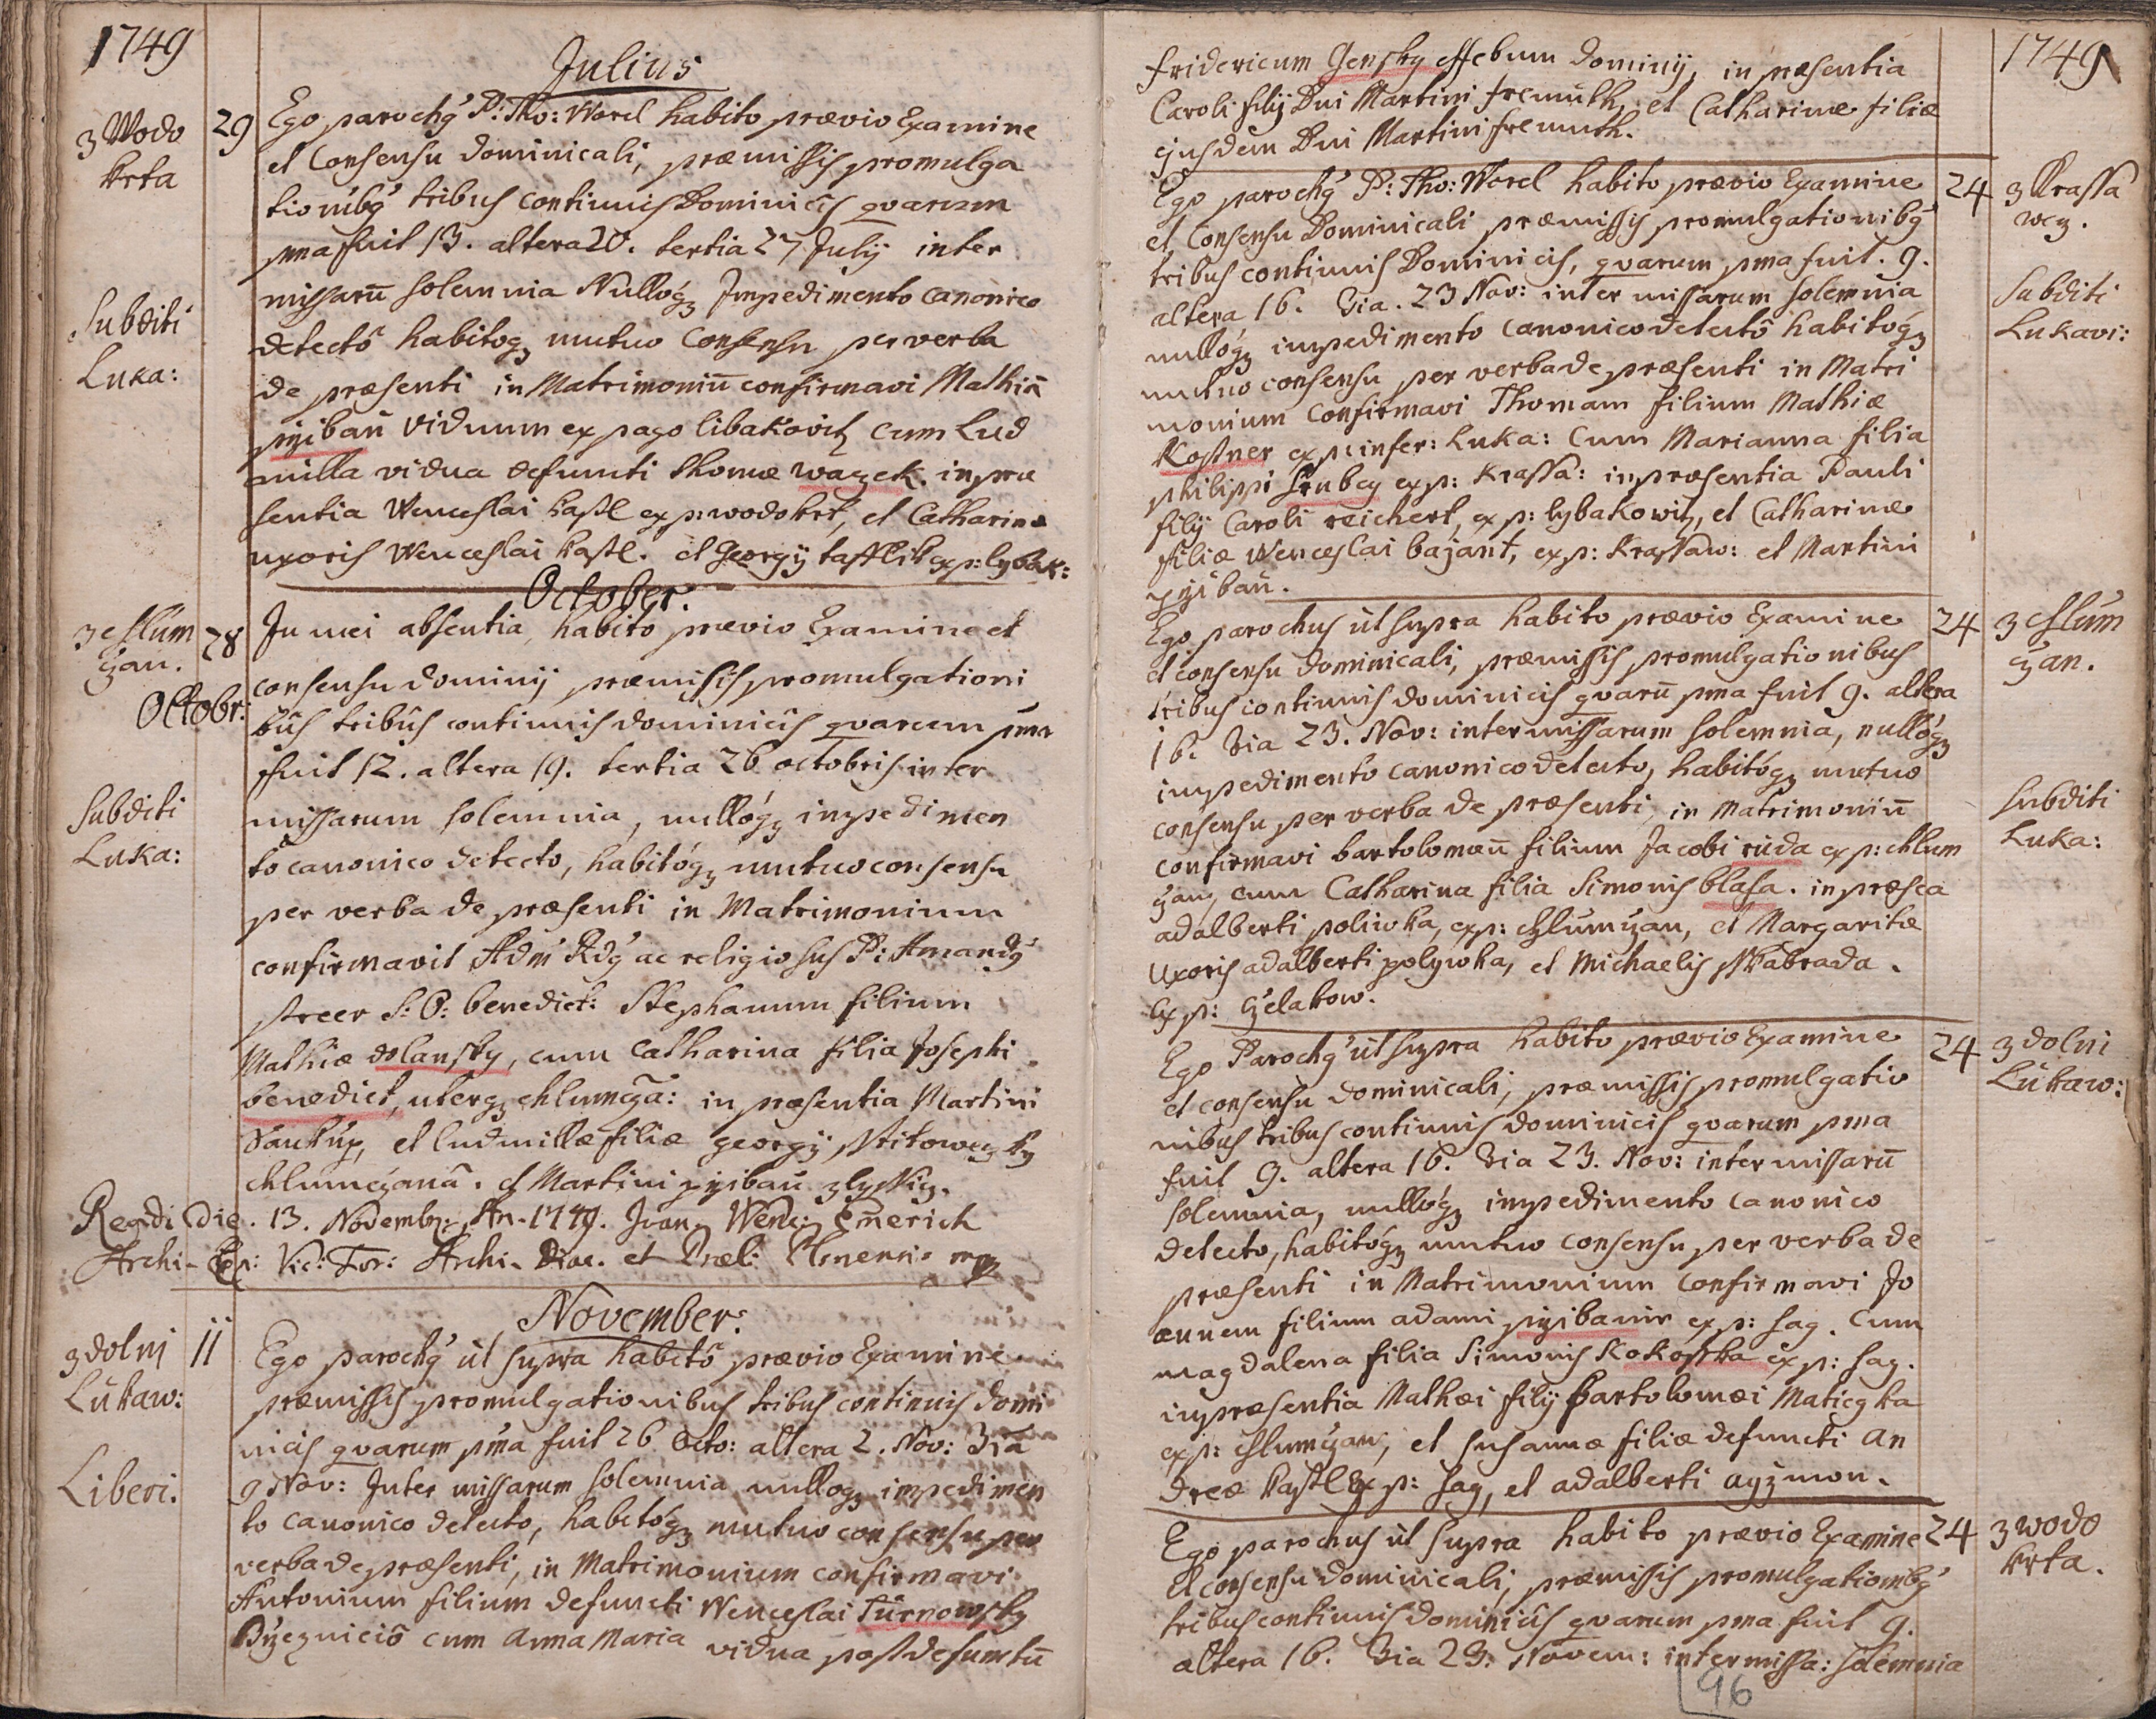 1749
Julius
3 Wodo
krta
29
Ego parochg P: Tho: Worel habito prævio Examine
et Consensu dominicali, præmissis promulga
tionibg tribus continuis Dominicis qvarum
pma fuit 13. altera 20. tertia 27 Julij inter
missarū solemnia Nullogz Impedimento canonico
Subditi
Luka:
detectô habitogz mutuo Consensu per verba
de præsenti in Matrimoniū confirmavi Mathiā
pijibaū viduum ex pago libakovitz cum Lud
milla vidua defuncti thomæ wazek. in præ
sentia Wenceslai kastl ex p: wodokrt, et Catharinæ
uxoris Wenceslai kastl. et Georgij taffllik ex p: lybak:
October.
z chlum
çzan.
28
Octobr:
In mei absentia, habito prævio Examine et
consensu dominij præmissis promulgationi
bus tribus continuis dominicis qvarum pma
fuit 12. altera 19. tertia 26 octobris inter
Subditi
Luka:
missarum solemnia, nullógz impedimen
to canonico detecto, habitógz mutuo consensu
per verba de præsenti in Matrimonium
confirmavit Adm Rdg ac religiosus P: Amandg
streer S: O: benedict: Stephanum filium
Mathiæ dolansky, cum Catharina filia Josephi
benedict, utergz chlumçzā: in præsentia Martini
Saukup, et ludmillæ filiæ georgij Stitoweczky
chlumçzanā. et Martini pijibaū zlyssicz.
Revdi die. 13. Novembr: An. 1749. Joan. Wenc: Emerich
Archi- Vic: For: Archi- Diac. et Præl:
November.
z dolnj
Lukaw:
11
Ego parochg ut supra habitô prævio Examine
præmissis promulgationibus tribus continuis domi
nicis qvarum pma fuit 26 Octo: altera 2. Nov: 3ia
Liberi.
9 Nov: Inter missarum solemnia nullogz impedimen
to canonico detecto, habitógz mutuo consensu per
verba de præsenti, in Matrimonium confirmavi
Antonium filium defuncti Wenceslai Turnowsky
cum Anna Maria vidua post defunctū
1749
fridericum Gensky effebum dominij, in præsentia
Caroli filij Dni Martini fremuth, et Catharinæ filiæ
ejusdem Dni Martini fremuth.
Ego parochg P: Tho: Worel habito prævio Examine
24
z Krassa
wcz.
et Consensu Dominicali præmissis promulgationibg
tribus continuis Dominicis, qvarum pma fuit. 9.
altera 16. 3ia. 23 Nov: inter missarum solemnia
Subditi
Lukavi:
nullógz impedimento canonico detectô habitógz
mutuo consensu per verba de præsenti in Matri
monium confirmavi Thomam filium Mathiæ
Kostner ex p: infer: Luka: Cum Marianna filia
philippi Srubcz ex p: Krassa: in præsentia Pauli
filij Caroli reichert, ex p: lybakowitz, et Catharinæ
filiæ Wenceslai bajant, ex p: krassaw: et Martini
pijibaū.
Ego parochus ut supra habito prævio Examine
24
z chlum
çzan.
et consensu dominicali, præmissis promulgationibus
tribus continuis dominicis qvarū pma fuit 9. altera
16. 3ia 23. Nov: inter missarum solemnia, nullógz
impedimento canonico detecto, habitógz mutuo
Subditi
Luka:
consensu per verba de præsenti, in Matrimoniū
confirmavi bartolomæū filium Jacobi ruda ex p: chlum
çzan, cum Catharina filia Simonis blasa. in præsca
adalberti poliwka, ex p: chlumçzan, et Margaritæ
Uxoris adalberti polywka, et Michaelis Wabrada.
Ex p: Czelakow.
Ego Parochg ut supra habito prævio Examine
24
z dolni
Lukaw:
et consensu dominicali, præmissis promulgatio
nibus tribus continuis dominicis qvarum pma
fuit 9. altera 16. 3ia 23. Nov: inter missarū
solemnia, nullógz impedimento canonico
detecto, habitógz mutuo consensu per verba de
præsenti in Matrimonium confirmavi Jo
annem filium adami pijibanir ex p: sag. Cum
magdalena filia Simonis Kokosska ex p: sag.
in præsentia Mathæi filij bartolomæi Maticzka
ex p: chlumçzan, et susannæ filiæ defuncti An
dreæ kastl Ex p: sag, et adalberti ayzmon.
Ego parochus ut supra habito prævio Examine
24
z wodo
krta.
et consensu dominicali, præmissis promulgationibg
tribus continuis dominicis qvarum pma fuit 9.
altera 16. 3ia 23. Novem: inter missa: solemnia
96